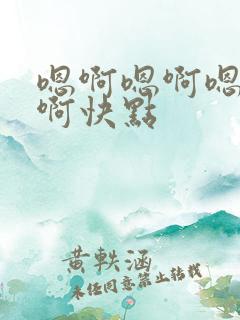 嗯啊嗯啊嗯
啊快點
黄軼涵
未经同意禁止转载